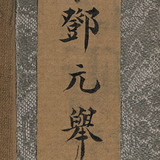 鄧元舉